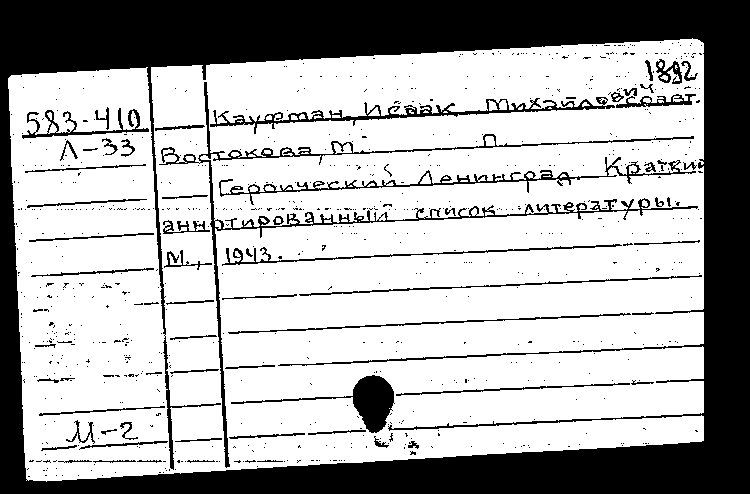 1892
583-410 Кауфман, Исаак Михайлович соавт.
Л-33 Востокова, М. П.
Героический Ленинград. Краткий
аннотированный список литературы.
М., 1943.
М-2